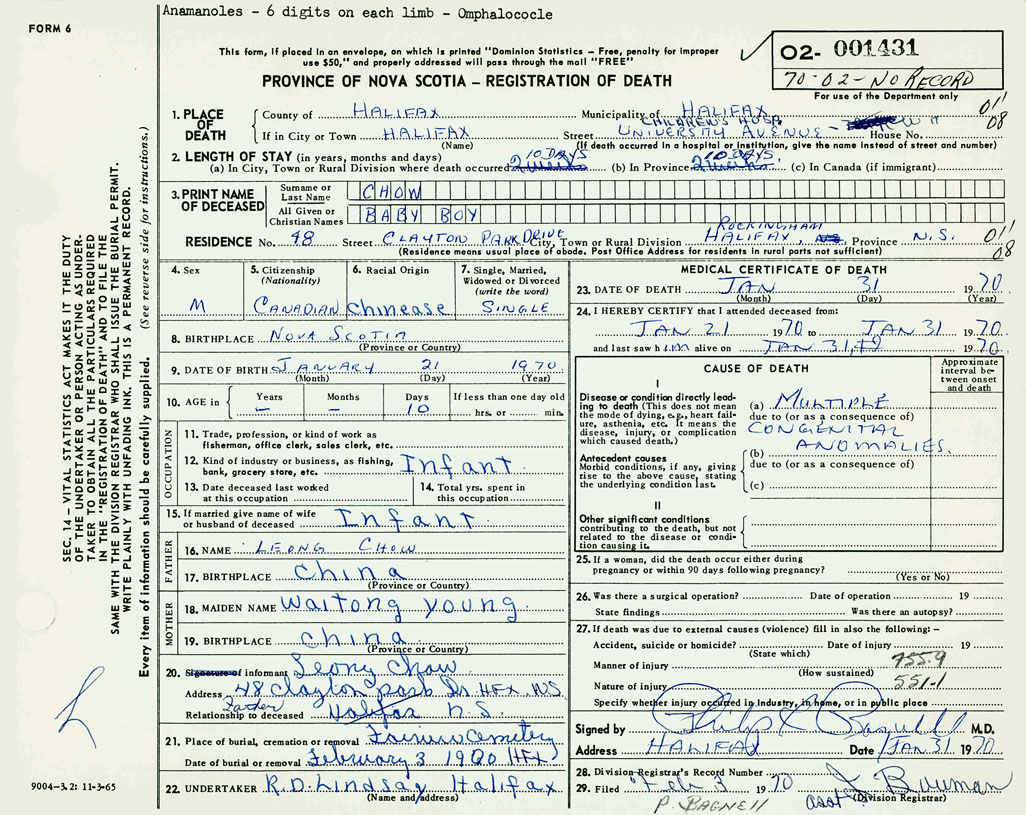 Anamanoles - 6 digits on each limb - Omphalococle
FORM 6
This form, if placed in an envelope, on which is printed "Dominion Statistics – Free, penalty for improper
use $50," and properly addressed will pass through the mail "FREE"
PROVINCE OF NOVA SCOTIA – REGISTRATION OF DEATH
02- 001431
70-02-NO RECORD
For use of the Department only
1. PLACE OF DEATH
County of HALIFAX Municipality of HALIFAX
011
08
CHILDREN'S HOSP.
If in City or Town HALIFAX Street UNIVERSITY AVENUE - House No.
(Name) (If death occurred in a hospital or institution, give the name instead of street and number)
2. LENGTH OF STAY (in years, months and days)
10 DAYS 10 DAYS
(a) In City, Town or Rural Division where death occurred 2 weeks (b) In Province 2 weeks (c) In Canada (if immigrant)
3. PRINT NAME OF DECEASED
Surname or Last Name CHOW
All Given or Christian Names BABY BOY
ROCKINGHAM
RESIDENCE No. 48 Street CLAYTON PARK DRIVE City, Town or Rural Division HALIFAX, Province N.S.
011
08
(Residence means usual place of abode. Post Office Address for residents in rural parts not sufficient)
4. Sex
M
5. Citizenship (Nationality)
CANADIAN
6. Racial Origin
Chinease
7. Single, Married, Widowed or Divorced (write the word)
SINGLE
8. BIRTHPLACE NOVA SCOTIA
(Province or Country)
9. DATE OF BIRTH JANUARY 21 1970
(Month) (Day) (Year)
10. AGE in Years – Months – Days 10 If less than one day old hrs. or min.
OCCUPATION
11. Trade, profession, or kind of work as fisherman, office clerk, sales clerk, etc.
12. Kind of industry or business, as fishing, bank, grocery store, etc. Infant
13. Date deceased last worked at this occupation
14. Total yrs. spent in this occupation
15. If married give name of wife or husband of deceased Infant
FATHER
16. NAME LEONG CHOW
17. BIRTHPLACE China
(Province or Country)
MOTHER
18. MAIDEN NAME Waitong young
19. BIRTHPLACE China
(Province or Country)
20. Signature of informant Leong Chow
Address 48 Clayton park Dr. HFX N.S.
Father
Relationship to deceased Halifax N.S.
21. Place of burial, cremation or removal Fairview Cemetery
Date of burial or removal February 3 1970 HFX
22. UNDERTAKER R.D. Lindsay Halifax
(Name and address)
MEDICAL CERTIFICATE OF DEATH
23. DATE OF DEATH JAN 31 1970
(Month) (Day) (Year)
24. I HEREBY CERTIFY that I attended deceased from:
JAN 21 1970 to JAN 31 1970
and last saw him alive on JAN 31, 1970
CAUSE OF DEATH
Approximate interval between onset and death
I
Disease or condition directly leading to death (This does not mean the mode of dying, e.g., heart failure, asthenia, etc. It means the disease, injury, or complication which caused death.)
(a) MULTIPLE
due to (or as a consequence of)
CONGENITAL
ANOMALIES.
Antecedent causes
Morbid conditions, if any, giving rise to the above cause, stating the underlying condition last.
(b)
due to (or as a consequence of)
(c)
II
Other significant conditions contributing to the death, but not related to the disease or condition causing it.
25. If a woman, did the death occur either during pregnancy or within 90 days following pregnancy?
(Yes or No)
26. Was there a surgical operation? Date of operation 19
State findings Was there an autopsy?
27. If death was due to external causes (violence) fill in also the following: –
Accident, suicide or homicide? Date of injury 19
(State which)
755.9
Manner of injury
(How sustained)
551-1
Nature of injury
Specify whether injury occurred in Industry, in home, or in public place
Signed by M.D.
Address HALIFAX Date JAN 31 1970
28. Division Registrar's Record Number
29. Filed Feb 3 1970 J Bauman
P. BAGNELL asst (Division Registrar)
SEC. 14 – VITAL STATISTICS ACT MAKES IT THE DUTY
OF THE UNDERTAKER OR PERSON ACTING AS UNDER-
TAKER TO OBTAIN ALL THE PARTICULARS REQUIRED
IN THE "REGISTRATION OF DEATH" AND TO FILE THE
SAME WITH THE DIVISION REGISTRAR WHO SHALL ISSUE THE BURIAL PERMIT.
WRITE PLAINLY WITH UNFADING INK. THIS IS A PERMANENT RECORD.
Every item of information should be carefully supplied. (See reverse side for instructions.)
9004-3.2: 11-3-65